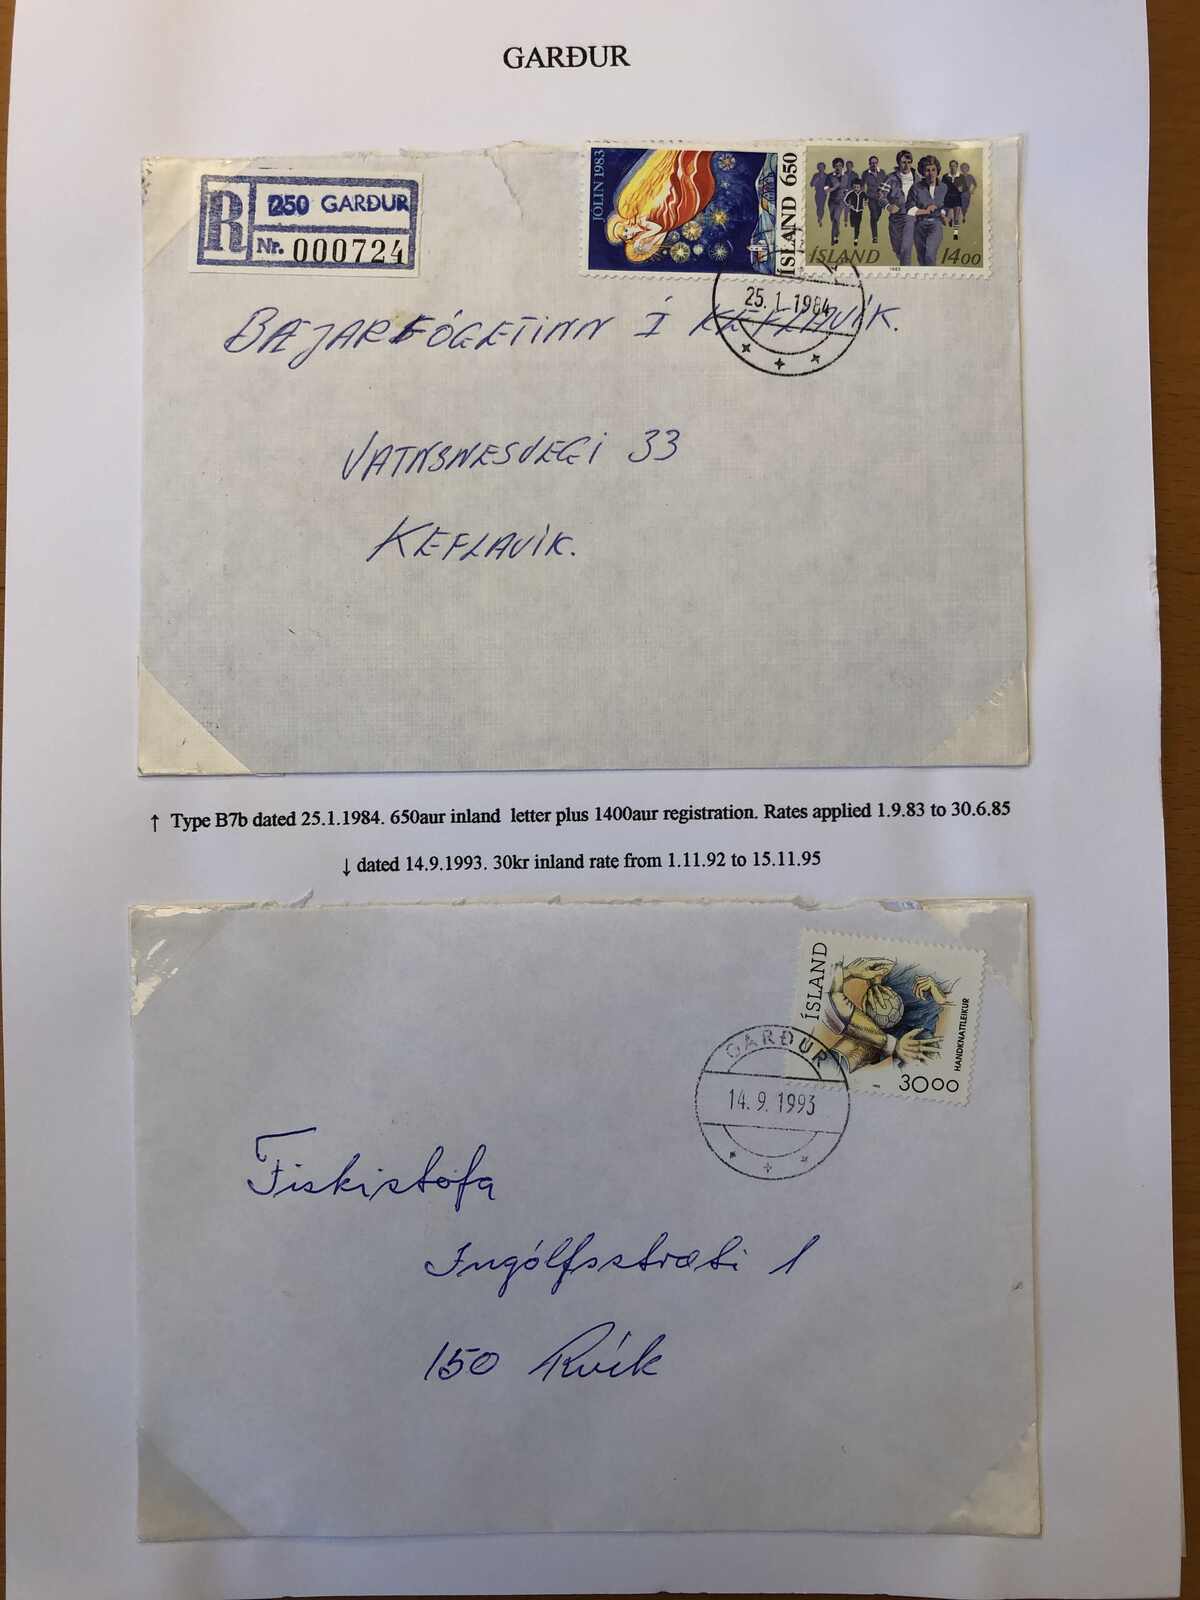 GARÐUR
R 250 GARÐUR
Nr. 000724
JÓLIN 1983
ÍSLAND 650
ÍSLAND 1400
1983
25. 1. 1984
BÆJARFÓGETINN Í KEFLAVÍK.
VATNSNESVEGI 33
KEFLAVÍK.
↑ Type B7b dated 25.1.1984. 650aur inland letter plus 1400aur registration. Rates applied 1.9.83 to 30.6.85
↓ dated 14.9.1993. 30kr inland rate from 1.11.92 to 15.11.95
ÍSLAND
HANDKNATTLEIKUR
3000
GARÐUR
14. 9. 1993
Fiskistofa
Ingólfsstræti 1
150 Rvík